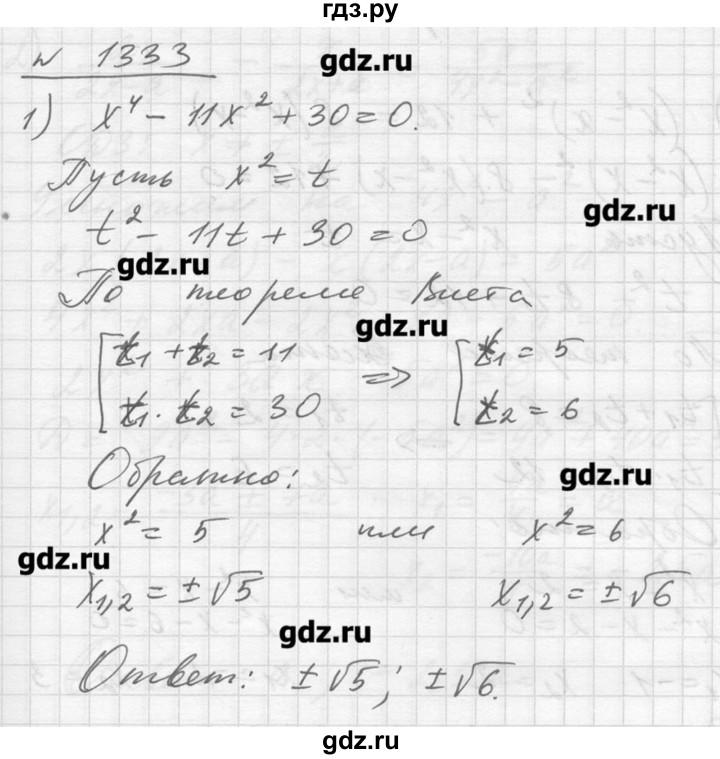 гдз.ру
№ 1333
gdz.ru
1) x⁴ - 11x² + 30 = 0.
Пусть x² = t
gdz.ru
t² - 11t + 30 = 0
gdz.ru
По теореме Виета
gdz.ru
[ t₁ + t₂ = 11 => [ t₁ = 5
[ t₁ · t₂ = 30 [ t₂ = 6
Обратно:
gdz.ru
x² = 5 или x² = 6
gdz.ru
x₁,₂ = ±√5 x₁,₂ = ±√6
gdz.ru
Ответ: ±√5; ±√6.
gdz.ru